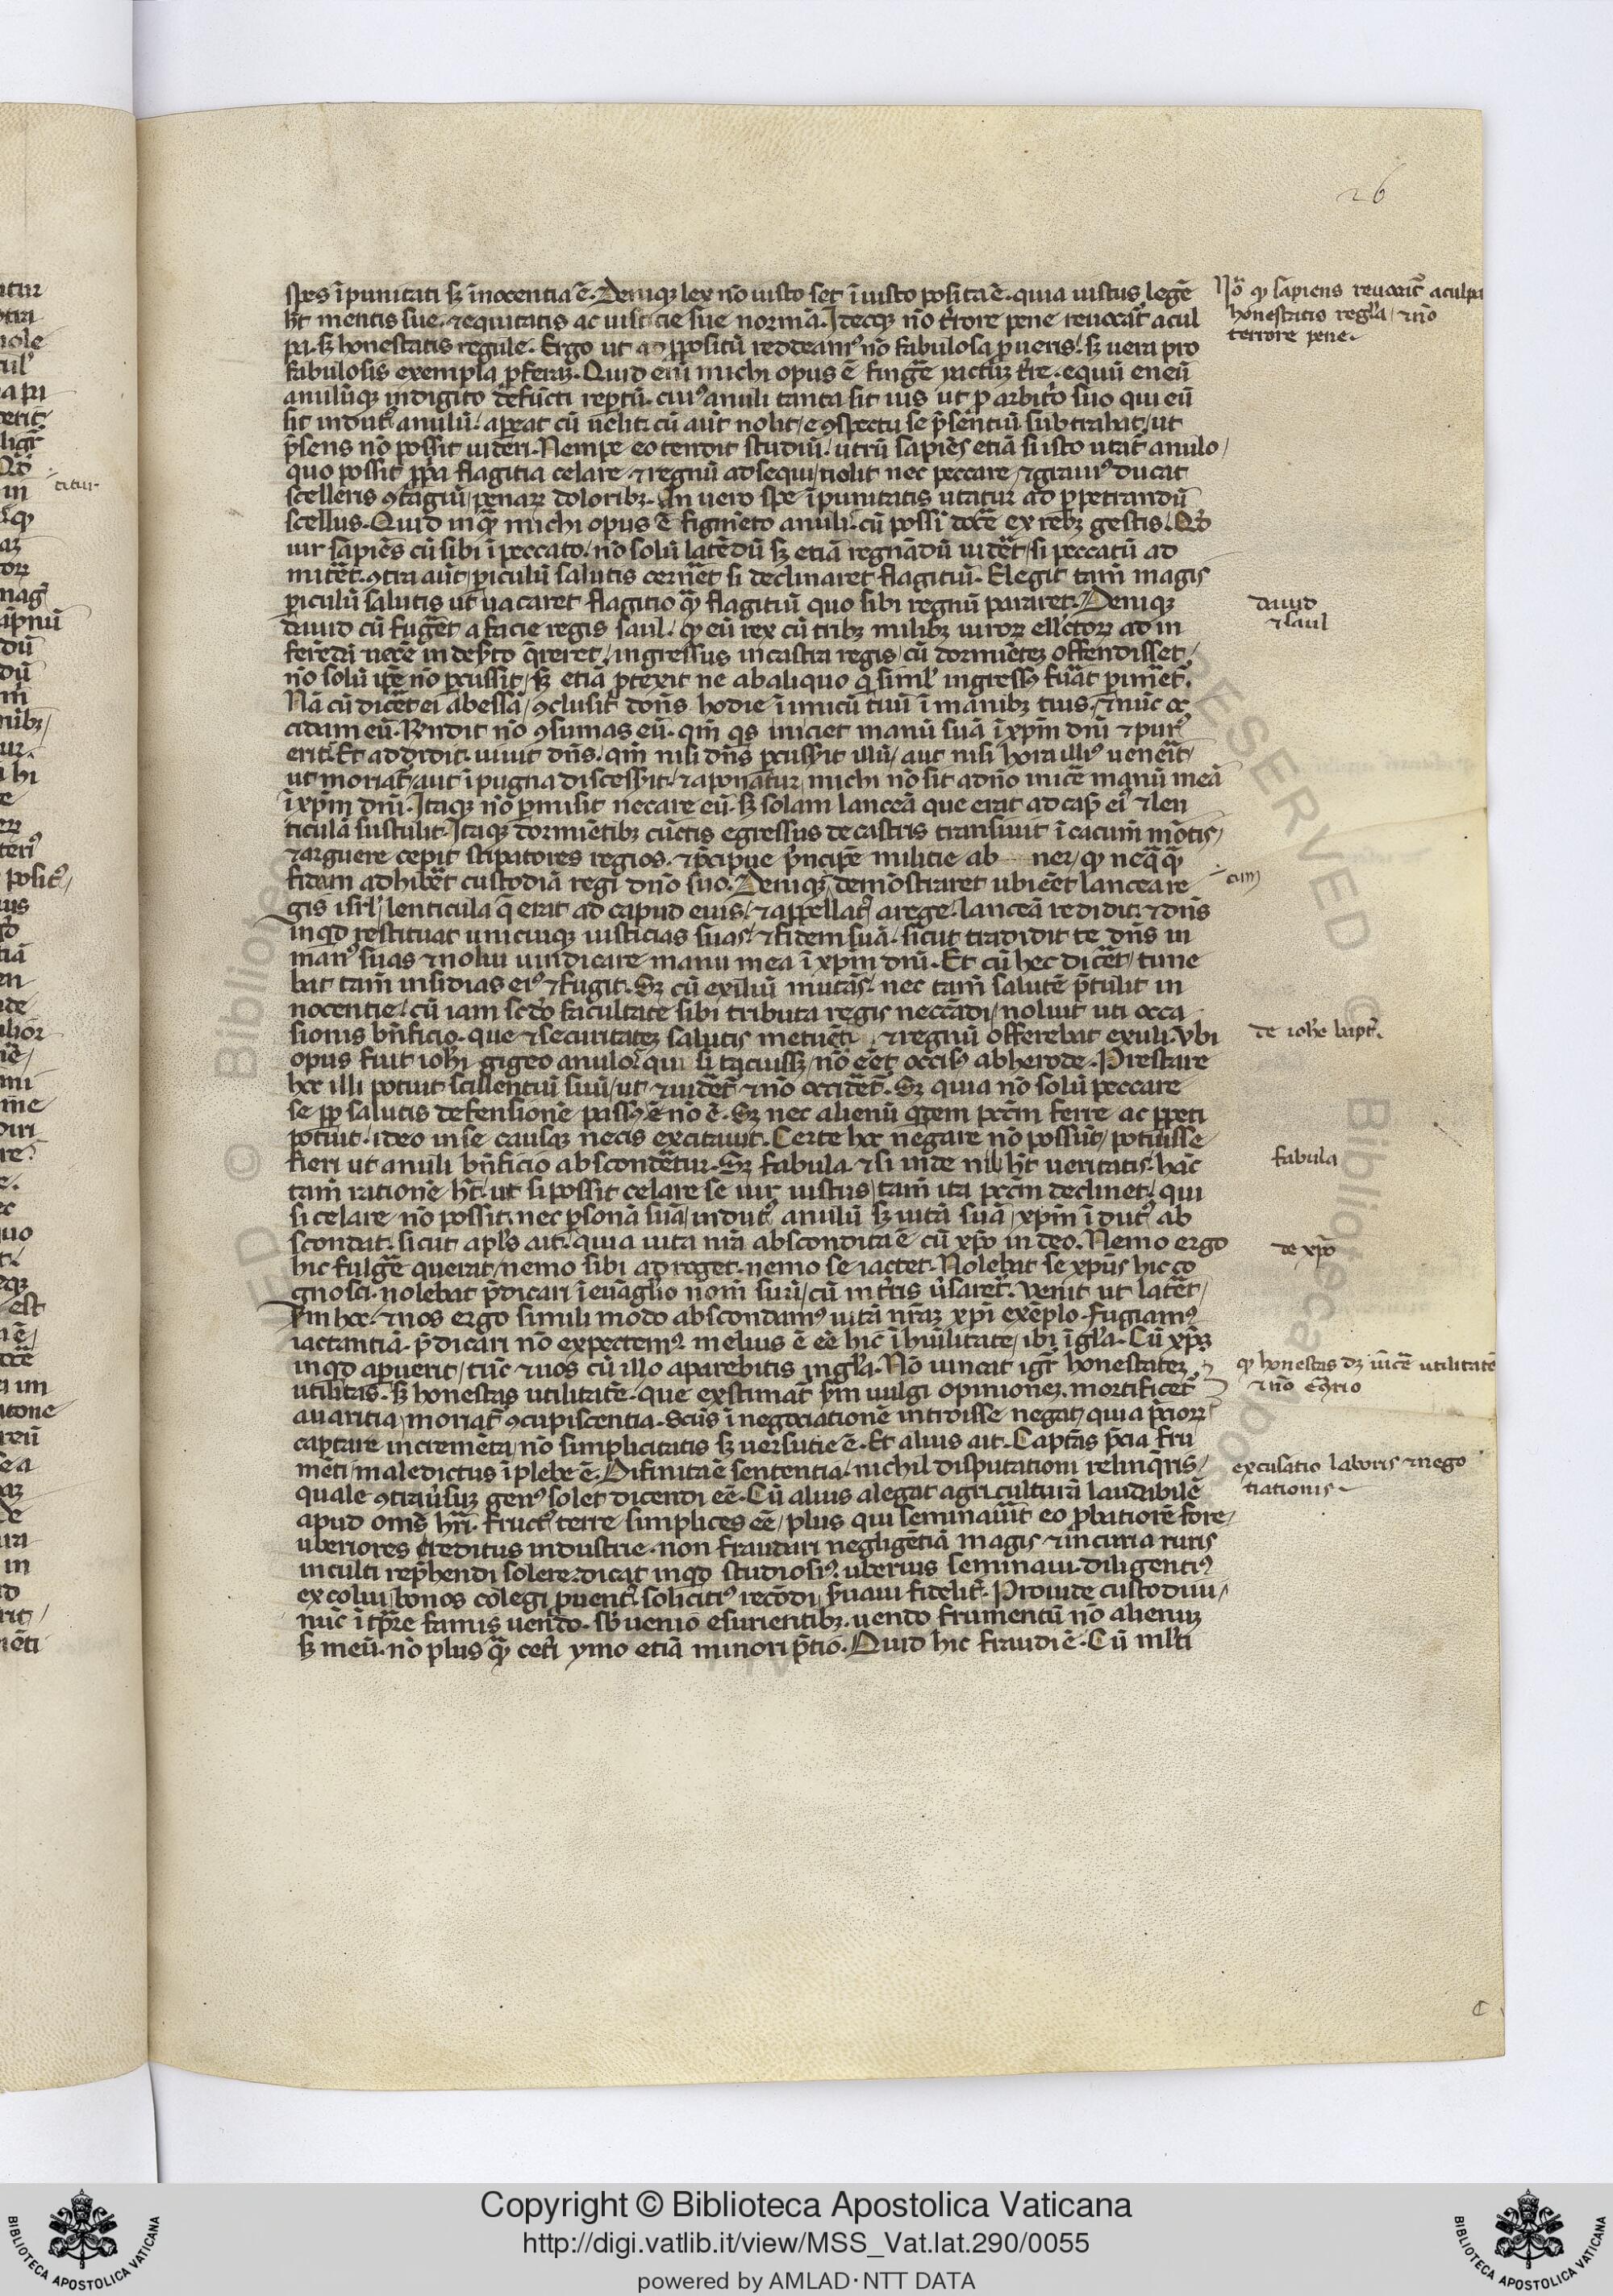 26
spes ī punitati sȝ īnocentia ē. Deniqȝ lex nō iusto set ī iusto posita ē. quia iustus legē
ht̄ mentis sue. ⁊ equitatis ac iusticie sue normā. Ideoqȝ nō t̄rore pene reuocat̄ a cul
pa. sȝ honestatis regule. Ergo ut ad ꝓpositū redeamꝰ nō fabulosa ꝓ ueris. sȝ uera pro
fabulosis exempla ꝓferaȝ. Quid eni michi opus ē fingē yactuȝ t̄re. equū eneū
anulūqȝ in digito defūcti repertū. cuiꝰ anuli tanta sit uis ut ꝑ arbit̄o suo qui eū
sit indutꝰ anulū. apeat cū uelit. cū aūt nolit. e ꝯspectu se p̄sentiū subtrahat. ut
p̄sens nō possit uideri. Nempe eo tendit studiū. utrū sapiēs etiā si isto utat̄ anulo/
quo possit ꝓpa flagitia celare. ⁊ regnū adsequi/ nolit nec peccare. ⁊ grauiꝰ ducat
scelleris ꝯtagiū/ penarꝝ doloribȝ. An uero spe ī punitatis utatur ad ꝑpetrandū
scellus. Quid inqȝ michi opus ē figmēto anuli. cū possī docē ex rebȝ gestis. Qđ
uir sapiēs cū sibi ī peccato/ nō solū latēdū sȝ etiā regnādū uidēt/ si peccatū ad
mitēt. ꝯtra aūt/ piculū salutis cernēt si declinaret flagitiū. Elegit tam̄ magis
piculū salutis ut uacaret flagitio qȝ flagitiū quo sibi regnū pararet. Deniqȝ
dauid cū fugēt a facie regis saul. qȝ eū rex cū tribȝ milibȝ uirorꝝ ellctorꝝ ad in
ferēdā necē in deśto q̄reret/ ingressus in castra regis/ cū dormiēteȝ offendisset/
nō solū ip̄e nō ꝑcussit/ sȝ etiā ꝓtexit ne ab aliquo q simƚ ingressꝰ fuāt ꝑimēt.
Nā cū dicēt ei abessā/ ꝯclusit dn̄s hodie īimicū tuū ī manibȝ tuis/ ⁊ nūc oc
cidam eū. Rn̄dit nō ꝯsumas eū. qm̄ qs iniciet manū suā ī xp̄m dn̄i ⁊ purꝰ
erit. Et addidit. uiuit dn̄s. qm̄ nisi dn̄s ꝑcussit illū/ aut nisi hora illiꝰ uenēit/
ut moriat̄/ aut ī pugna discessit. ⁊ aponatur/ michi nō sit a dn̄o inicē manū meā
ī xp̄m dn̄i. Itaqȝ nō ꝑmisit necare eū. sȝ solam lanceā que erat ad cap̄ eiꝰ ⁊ len
ticulā sustulit. Itaqȝ dormiētibȝ cūctis egressus de castris transiuit ī cacum̄ mōtis/
⁊ arguere cepit stipatores regios. ⁊ p̄cipue p̄ncipē militie ab ner/ qȝ neqq̄
fidam adhibēt custodiā regi dn̄o suo. Deniqȝ demōstraret ubi eēt lancea re
gis isrƚ/ lenticula q̄ erat ad capud euis/ ⁊ appellatꝰ a rege. lanceā redidit. ⁊ dn̄s
inqđ restituat unicuiqȝ iusticias suas. ⁊ fidem suā. sicut tradidit te dn̄s in
manꝰ suas ⁊ nolui uindicare manu mea ī xp̄m dn̄i. Et cū hec dicēt/ time
bat tam̄ insidias eiꝰ ⁊ fugit. Sȝ cū exiliū mutās/ nec tam̄ salutē p̄tulit in
nocentie. cū iam scd̄o facultate sibi tributa regis neccādi/ noluit uti occa
sionis bn̄ficio. que ⁊ securitateȝ salutis metuēti ⁊ regnū offerebat exuli. Vbi
opus fuit ioh̄i gigeo anulo. qui si tacuissȝ/ nō eēt occisꝰ ab herode. Prestare
hoc illi potuit scillentiū suū/ ut ⁊ uidēt̄ ⁊ nō occidēt̄. Sȝ quia nō solū peccare
se ꝓp salutis defensionē passꝰ ē nō ē. Sȝ nec alienū qdem pctm̄ ferre ac ꝑpeti
potuit. ideo in se causaȝ necis excitauit. Certe hoc negare nō possūt/ potuisse
fieri ut anuli bn̄ficio abscondēt̄ur. Sȝ fabula ⁊ si inde nil ht̄ ueritatis. hāc
tam̄ rationē ht̄. ut si possit celare se uir iustus/ tam̄ ita pctm̄ declinet. qui
si celare nō possit. nec ꝑsonā suā/ indutꝰ anulū sȝ uitā suā/ xp̄m ī dutꝰ ab
scondat. sicut apƚs ait. quia uita nr̄a abscondita ē cū xp̄o in deo. Nemo ergo
hic fulgē querat/ nemo sibi adroget. nemo se iactet. Nolebat se xp̄us hic co
gnosci. nolebat p̄dicari ī euāglio nom̄ suū/ cū in t̄ris ūsaret̄. Venit ut latēt/
hoc. ⁊ nos ergo simili modo abscondamꝰ uitā nr̄aȝ xp̄i exēplo. fugiamꝰ
iactantiā. p̄dicari nō expectemꝰ. melius ē eē hic ī humilitate/ ibi ī gƚa. Cū xp̄s
inqđ apuerit/ tūc ⁊ uos cū illo aparebitis in gƚa. Nō uincat igr̄ honestateȝ
utilitas. sȝ honestas utilitatē. que exstimat̄ ẏm uulgi opinioneȝ. mortificet̄
auaritia/ moriat̄ ꝯcupiscentia. Scūs ī negociationē introisse negat/ quia p̄ciorꝝ
captare incremēta/ nō simplicitatis sȝ uersutie ē. Et alius ait. Captās p̄cia fru
mēti/ maledictus ī plebe ē. Difinita ē sententia. nichil disputationi relinq̄ris/
quale ꝯtraūsuȝ genꝰ solet dicendi eē. Cū alius alegat agriculturā laudabilē
apud om̄s hr̄i. fructꝰ terre simplices eē/ plus qui seminauīt eo ꝓbatiorē fore/
uberiores creditus industrie. non fraudari negligētiā magis ⁊ incuria ruris
inculti rep̄hendi solere. dicat inqđ studiosiꝰ uberius seminaui. diligentiꝰ
excolui/ bonos colegi ꝓuentꝰ. solicitiꝰ recōdi/ s̄uaui fidelit̄. Prouide custodiui/
nūc ī tp̄re famis uendo. sb̄uenio esurientibȝ. uendo frumentū nō alienuȝ
sȝ meū. nō plus qȝ cet̄i ymo etiā minori p̄tio. Quid hic fraudi ē. Cū mƚti
Nō qȝ sapiens reuocat̄ a culpa
honestatis regƚa/ ⁊ nō
terrore pene.
dauid
⁊ saul
cum
de ioh̄e bapt̄.
fabula
de xp̄o
qȝ honestas dȝ uīcē utilitatē
⁊ nō
excusatio laboris ⁊ nego
tiationis
Copyright © Biblioteca Apostolica Vaticana
http://digi.vatlib.it/view/MSS_Vat.lat.290/0055
powered by AMLAD·NTT DATA
BIBLIOTECA APOSTOLICA VATICANA
BIBLIOTECA APOSTOLICA VATICANA